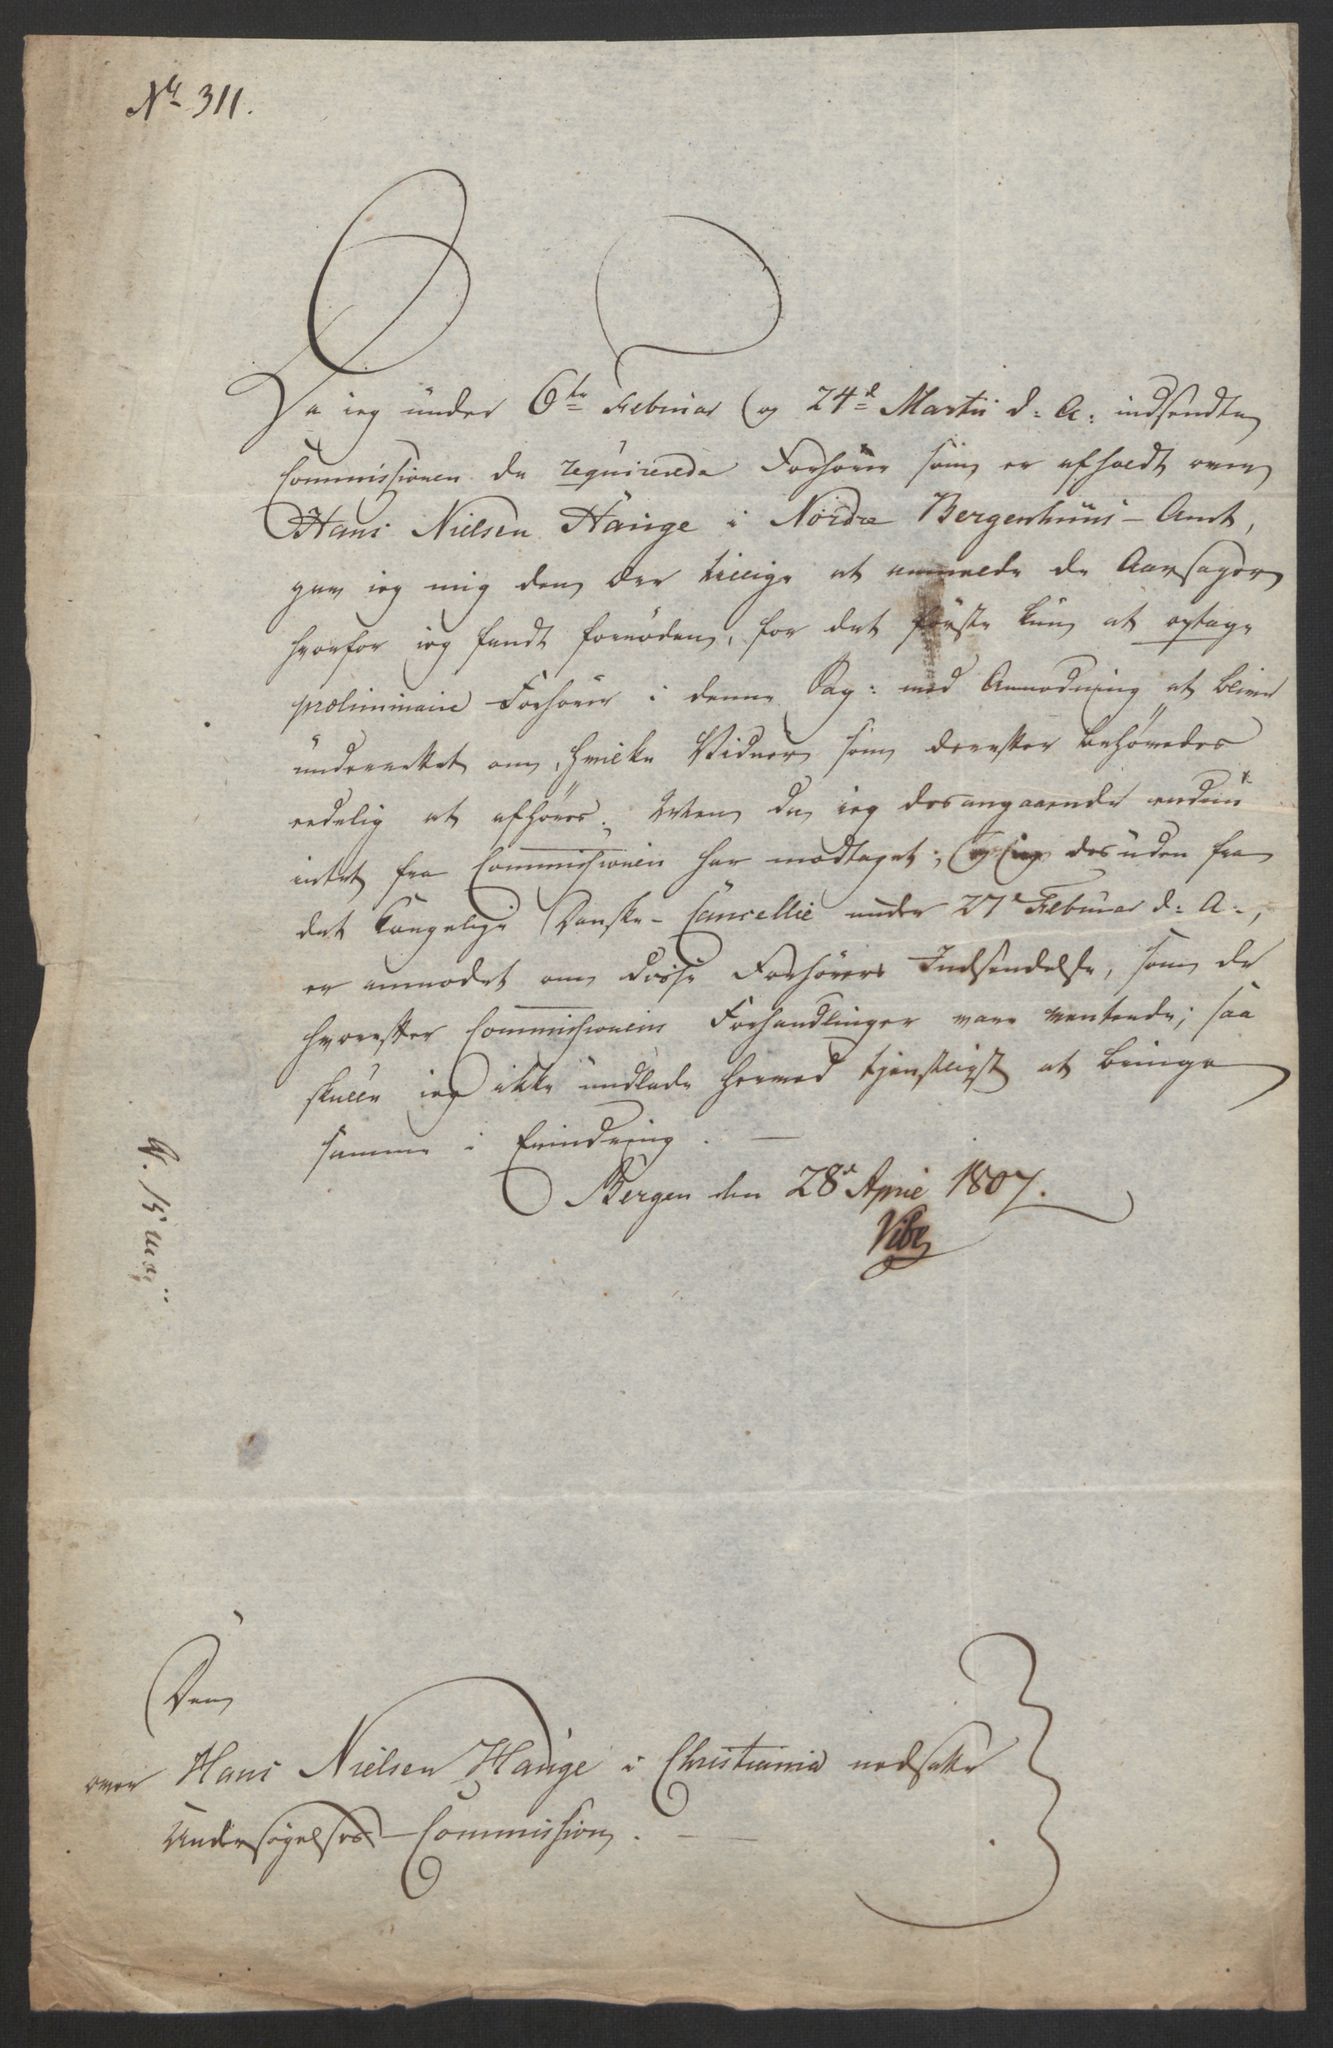 No 311.
Da jeg under 6te Februar og 24de Martii d: A: indsendte
Commissionen de requirerede Forhører som er afholdt over
Hans Nielsen Hauge i Nordre Bergenhuus-Amt,
gav jeg mig den Ære tillige at anmelde de Aarsager
hvorfor jeg fandt fornøden, for det første kun at optage
præliminaire Forhører i denne Sag: med Anmodning at blive
underrettet om, hvilke Vidner som derefter behøvedes
eedelig at afhøres. Men da jeg desangaaende endnu
intet fra Commissionen har modtaget; og jeg desuden fra
det Kongelige Danske-Cancellie under 27e Februar d: A:,
er anmodet om disse Forhørers Indsendelse, som de
hvorefter Commissionens Forhandlinger vare ventende; saa
skulle jeg ikke undlade herved tjenstligst at bringe
samme i Erindring.
Bergen den 28de April 1807.
Vibe
Den
over Hans Nielsen Hauge i Christiania nedsatte
Undersøgelses-Commission.